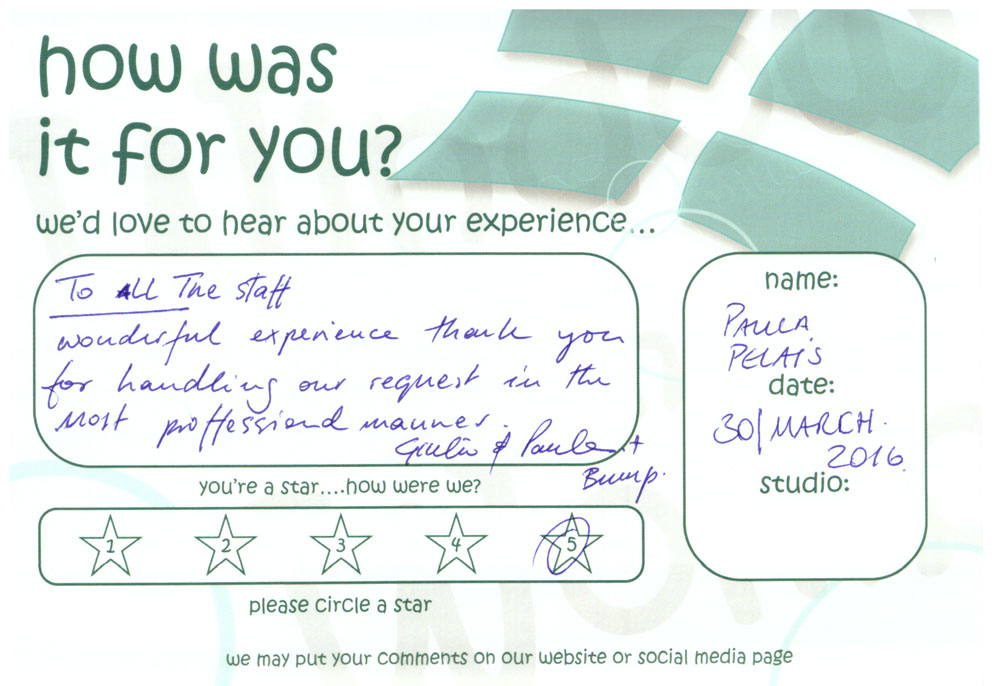 how was
it for you?
we'd love to hear about your experience...
To All The staff
wonderful experience thank you
for handling our request in the
most proffessional manner.
Giulio & Paula +
Bump.
you're a star....how were we?
1 2 3 4 5
please circle a star
name:
PAULA
PELAIS
date:
30/MARCH.
2016.
studio:
we may put your comments on our website or social media page